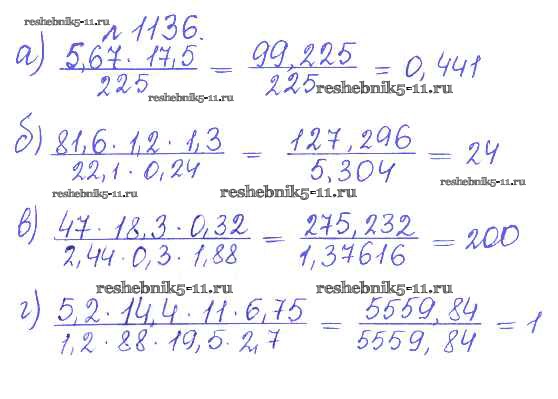 reshebnik5-11.ru
№ 1136.
reshebnik5-11.ru
а) 5,67 · 17,5 / 225 = 99,225 / 225 = 0,441
reshebnik5-11.ru
reshebnik5-11.ru
б) 81,6 · 1,2 · 1,3 / 22,1 · 0,24 = 127,296 / 5,304 = 24
reshebnik5-11.ru
reshebnik5-11.ru
reshebnik5-11.ru
в) 47 · 18,3 · 0,32 / 2,44 · 0,3 · 1,88 = 275,232 / 1,37616 = 200
reshebnik5-11.ru
reshebnik5-11.ru
г) 5,2 · 14,4 · 11 · 6,75 / 1,2 · 88 · 19,5 · 2,7 = 5559,84 / 5559,84 = 1